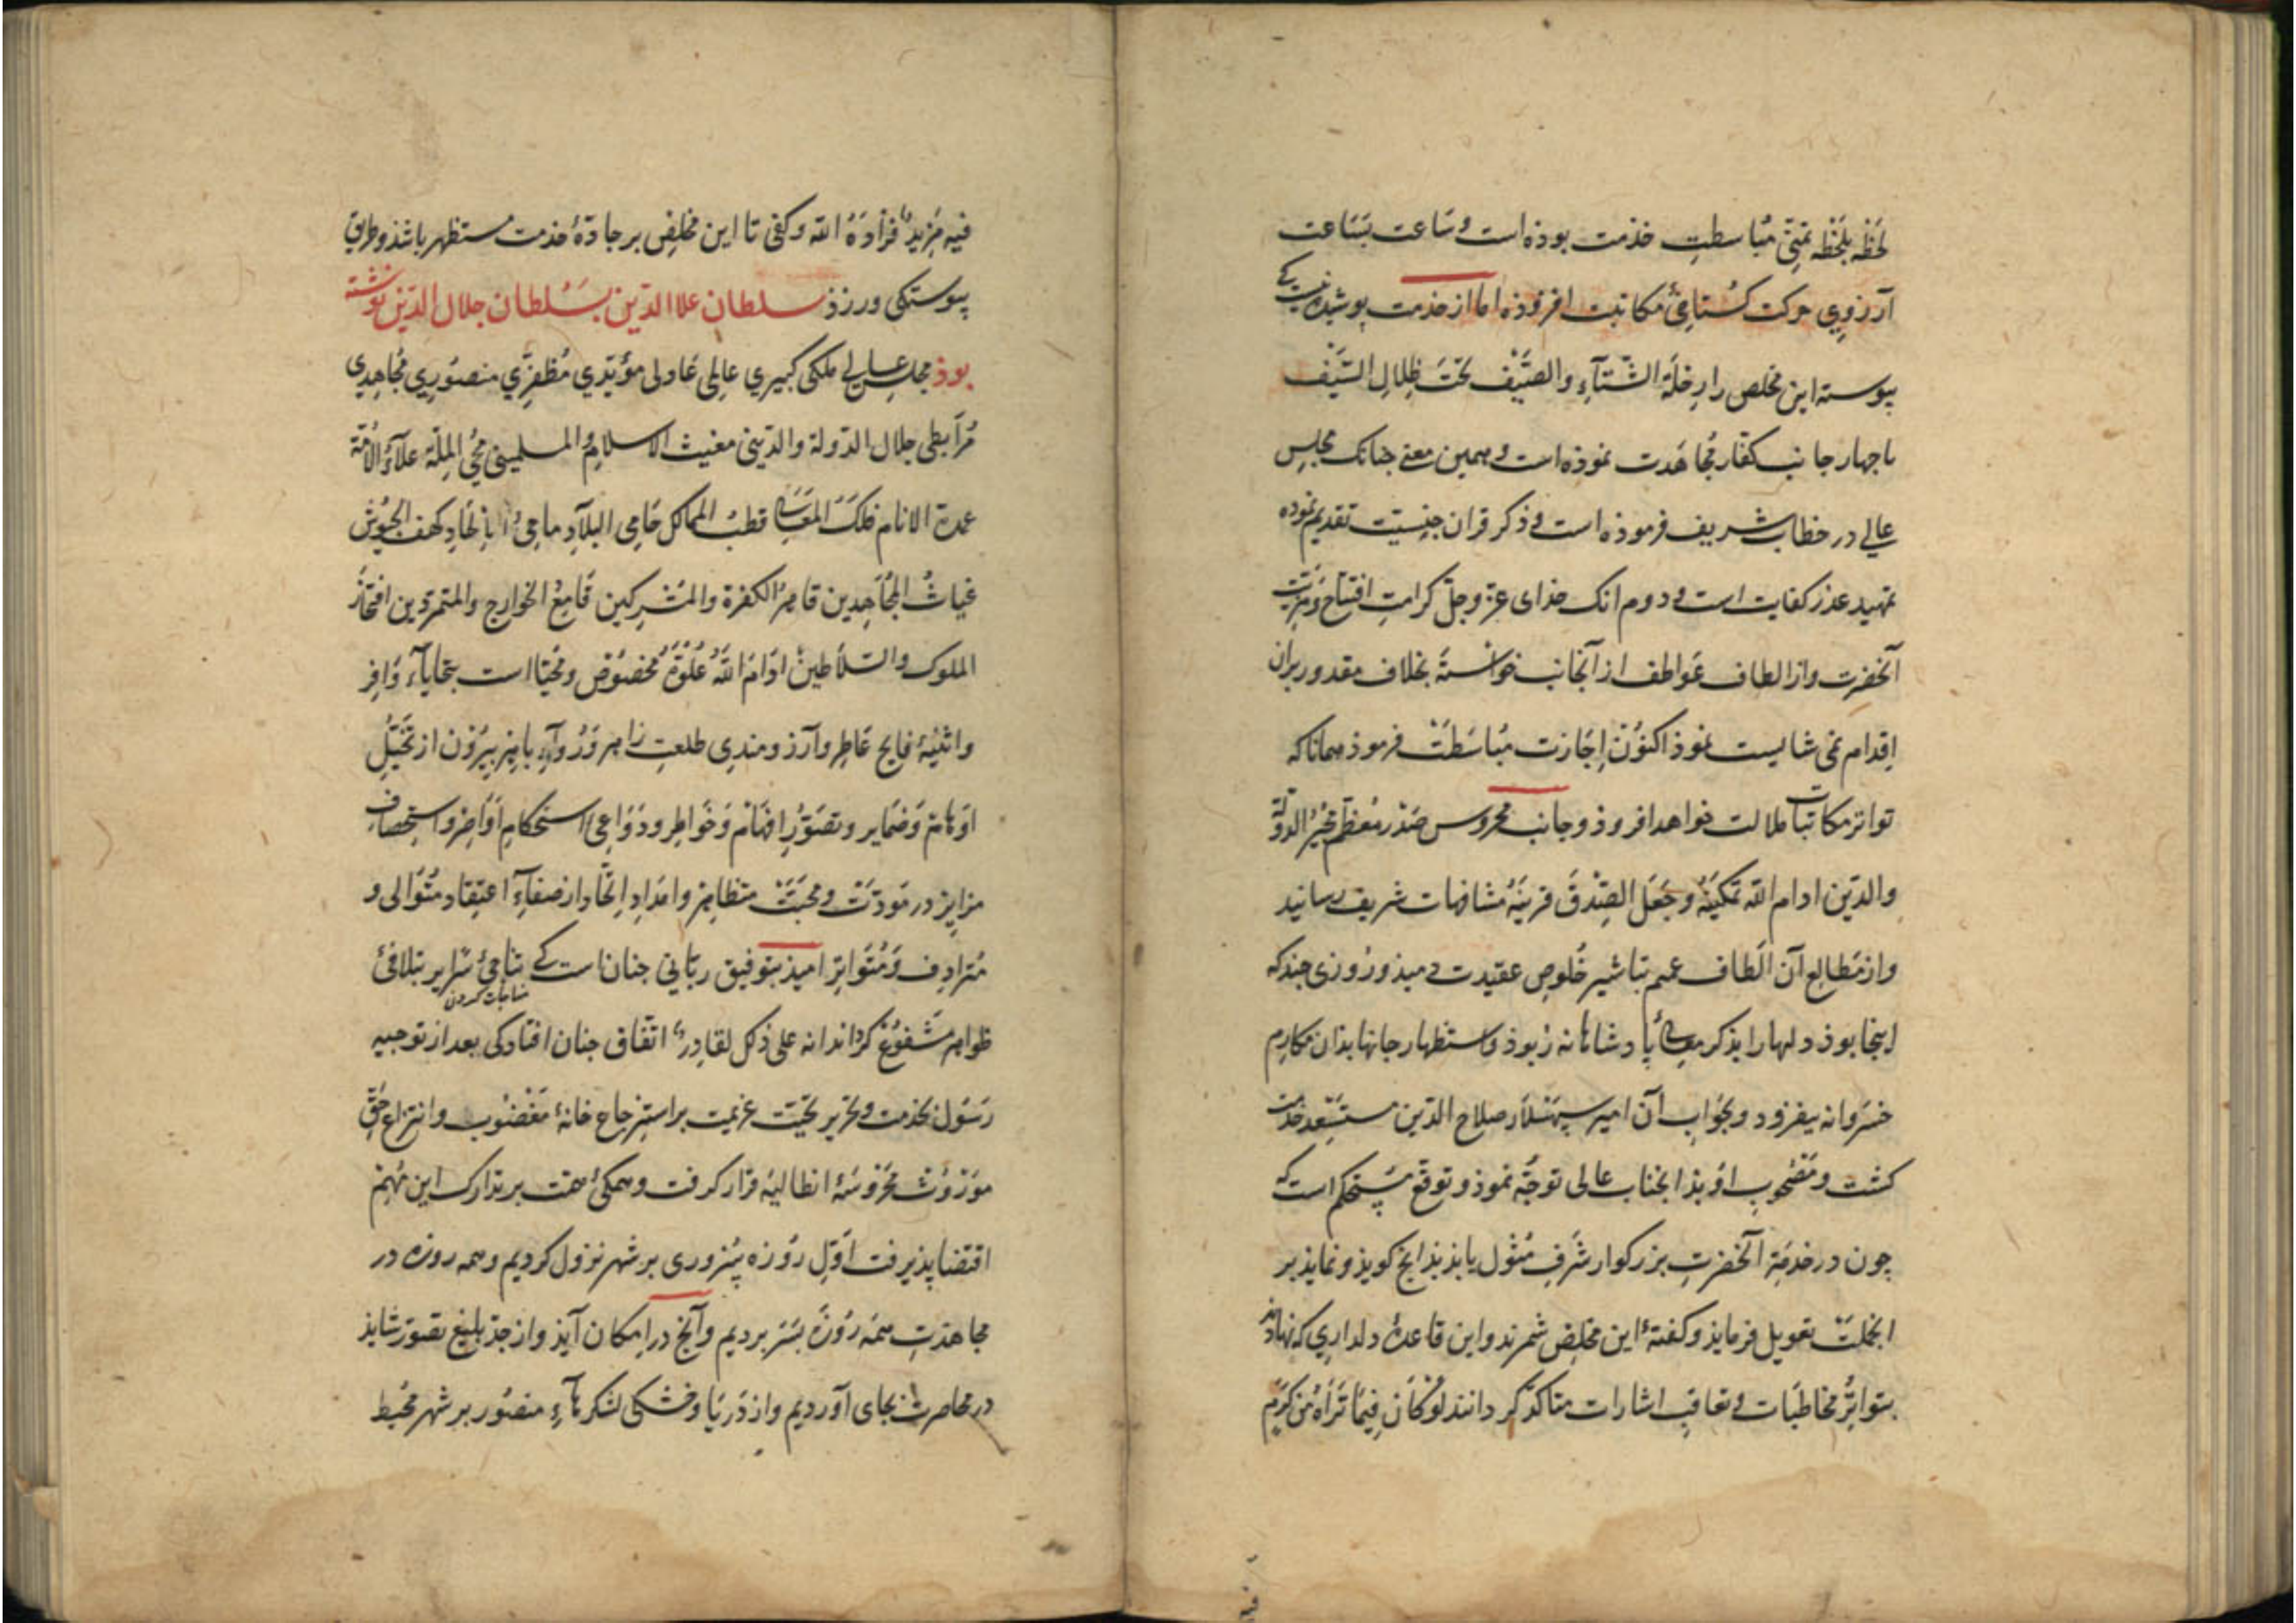 لحظه بلحظه تمنّی مباسطتِ خذمت بوذه است و ساعت بساعت
آرزوی حرکت گستاخیٔ مکاتبت افزوذه اما از خذمت پوشیده نیست کی
پیوسته این مخلص را رحلة الشتآءِ والصیف تحت ظلال السیف
با چهار جانب کفار مجاهدت نموذه است و همین معنی جنانک مجلس
عالی در خطاب شریف فرموذه است و ذکر قران جنسیت تقدیم نموده
تمهید عذر کفایت است و دوم انک خذای عزّ و جلّ کرامتِ افتتاح و مزیت
آنحضرت و از الطاف عواطف از آنجانب خواسته بخلاف مقدور بران
اقدام نمی شایست نموذ اکنون اجازت مباسطت فرموذ همانا که
تواتر مکاتبات ملالت نخواهد افزوذ و جانب محروس صدر معظم مجیر الدولة
والدین ادام الله تمکینه وجعل الصدق قرینه مشافهات شریف رسانید
و از مطالع آن الطاف عمیم تباشیر خلوص عقیدت دمیذ و روزی جند که
اینجا بوذ دلها را بذکر معالیٔ پادشاهانه ربوذ و استظهار جانها بذان مکارم
خسروانه بیفزود و بجواب آن امیر سپهسلار صلاح الدین مستسعد خدمت
کشت و مصحوب او بذانجناب عالی توجه نموذ و توقع مستحکم است که
چون در خدمت آنحضرتِ بزرکوار شرف مثول یابذ بذانج کویذ و نمایذ بر
انجملت تعویل فرمایذ و کفتهٔ این مخلص شمرند و این قاعدهٔ دلداری که نهاده‌اند
بتواتر مخاطبات و تعاقب اشارات متاکد کردانند لو کان فیما تراه من کرم
فیه مزید فزادهُ الله و کفی تا این مخلص بر جادهٔ خذمت مستظهر باشذ و طریق
پیوستکی ورزذ سلطان علاالدین بسلطان جلال الدین نوشته
بوذ مجلس عالی ملکی کبیری عالمی عادلی مؤیدی مظفری منصوری مجاهدی
مرابطی جلال الدولة والدینی مغیث الاسلام والمسلمینی محیی الملة علآء الامة
عمدة الانام فلک المعالی قطب الممالک حامی البلاد ماحی الالحاد کهف الجیوش
غیاث المجاهدین قاهر الکفرة والمشرکین قامع الخوارج والمتمردین افتخار
الملوک والسلاطین ادام الله علوّه مخصوص و محیّا است بتحایاء وافر
و اثنیهٔ فایح عاطر و آرزومندی طلعتِ زاهر و رُوآءِ باهر بیرون از تخیل
اوهام و ضمایر و تصور افهام و خواطر و دواعی استحکام اواصر و استحصاف
مرایر در مودت و محبت متظاهر و امدادِ اتحاد از صفآءِ اعتقاد متوالی و
مترادف و متواتر امیذ بتوفیق ربانی جنان است کی تناجیٔ سرایر بتلاقیٔ
مناجات کردن
ظواهر مشفوع کرداند انه علی ذلک لقادر اتفاق جنان افتاد کی بعد از توجیه
رسول بخذمت و تحریر تحیت عزیمت بر استرجاع خانهٔ مغضوب و انتزاع حق
موروث محروسهٔ انطالیه قرار کرفت و همکیٔ همت بر تدارک این مهم
اقتضا پذیرفت اول روزه پیروزی بر شهر نزول کردیم و همه روزه در
مجاهدتِ همه روزه بسر بردیم و آنج در امکان آیذ و از جدّ بلیغ تصور شایذ
در محاصرت بجای آوردیم و از دریا و خشکی لشکرهآءِ منصور بر شهر محیط